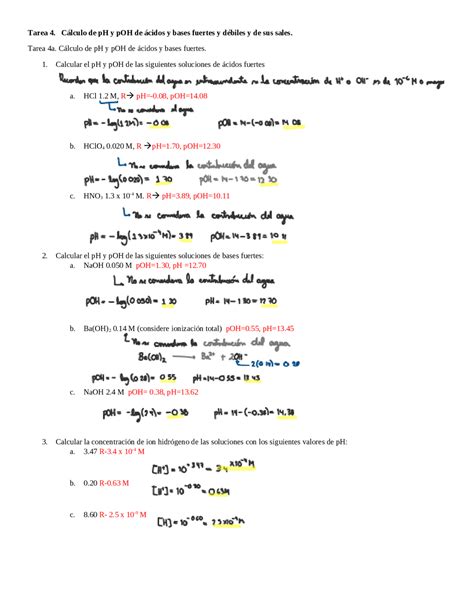 Tarea 4. Cálculo de pH y pOH de ácidos y bases fuertes y débiles y de sus sales.
Tarea 4a. Cálculo de pH y pOH de ácidos y bases fuertes.
1. Calcular el pH y pOH de las siguientes soluciones de ácidos fuertes
Recordar que la contribución del agua es intrascendente si la concentración de H⁺ o OH⁻ es de 10⁻⁶ M o mayor
a. HCl 1.2 M, R→ pH=-0.08, pOH=14.08
↳ No se considera el agua
pH = -log(1.2M) = -0.08 pOH = 14-(-0.08) = 14.08
b. HClO₄ 0.020 M, R →pH=1.70, pOH=12.30
↳ No se considera la contribución del agua
pH = -log(0.020) = 1.70 pOH = 14-1.70 = 12.30
c. HNO₃ 1.3 x 10⁻⁴ M. R→ pH=3.89, pOH=10.11
↳ No se considera la contribución del agua
pH = -log(1.3x10⁻⁴M) = 3.89 pOH = 14-3.89 = 10.11
2. Calcular el pH y pOH de las siguientes soluciones de bases fuertes:
a. NaOH 0.050 M pOH=1.30, pH =12.70
↳ No se considera la contribución del agua
pOH = -log(0.050) = 1.30 pH = 14-1.30 = 12.70
b. Ba(OH)₂ 0.14 M (considere ionización total) pOH=0.55, pH=13.45
↳ No se considera la contribución del agua
Ba(OH)₂ → Ba²⁺ + 2OH⁻
↳ 2(0.14) = 0.28
pOH = -log(0.28) = 0.55 pH = 14-0.55 = 13.45
c. NaOH 2.4 M pOH= 0.38, pH=13.62
pOH = -log(2.4) = -0.38 pH = 14-(-0.38) = 14.38
3. Calcular la concentración de ion hidrógeno de las soluciones con los siguientes valores de pH:
a. 3.47 R-3.4 x 10⁻⁴ M
[H⁺] = 10⁻³·⁴⁷ = 3.4 x10⁻⁴ M
b. 0.20 R-0.63 M
[H⁺] = 10⁻⁰·²⁰ = 0.63M
c. 8.60 R- 2.5 x 10⁻⁹ M